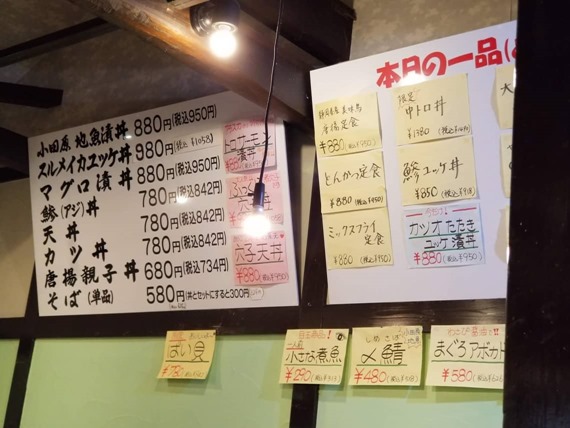 小田原 地魚漬丼 880円(税込950円)
スルメイカユッケ丼 980円(税込 ¥1058)
マグロ漬丼 880円(税込950円)
鯵(アジ)丼 780円(税込842円)
天丼 780円(税込842円)
カツ丼 780円(税込842円)
唐揚親子丼 680円(税込734円)
そば(単品) 580円(丼とセットにすると300円)
トロサーモン
漬丼
穴子天丼
¥880(税込¥950)
本日の一品
唐揚定食
¥880(税込¥950)
とんかつ定食
¥880(税込¥950)
ミックスフライ
定食
¥880(税込¥950)
限定
中トロ丼
¥1380
鯵ユッケ丼
¥850(税込¥918)
カツオたたき
ユッケ漬丼
¥880(税込¥950)
¥780
一人前
小さな煮魚
¥290(税込¥313)
しめさば
〆鯖
¥480(税込¥518)
わさび醤油
まぐろアボカド
¥580(税込¥626